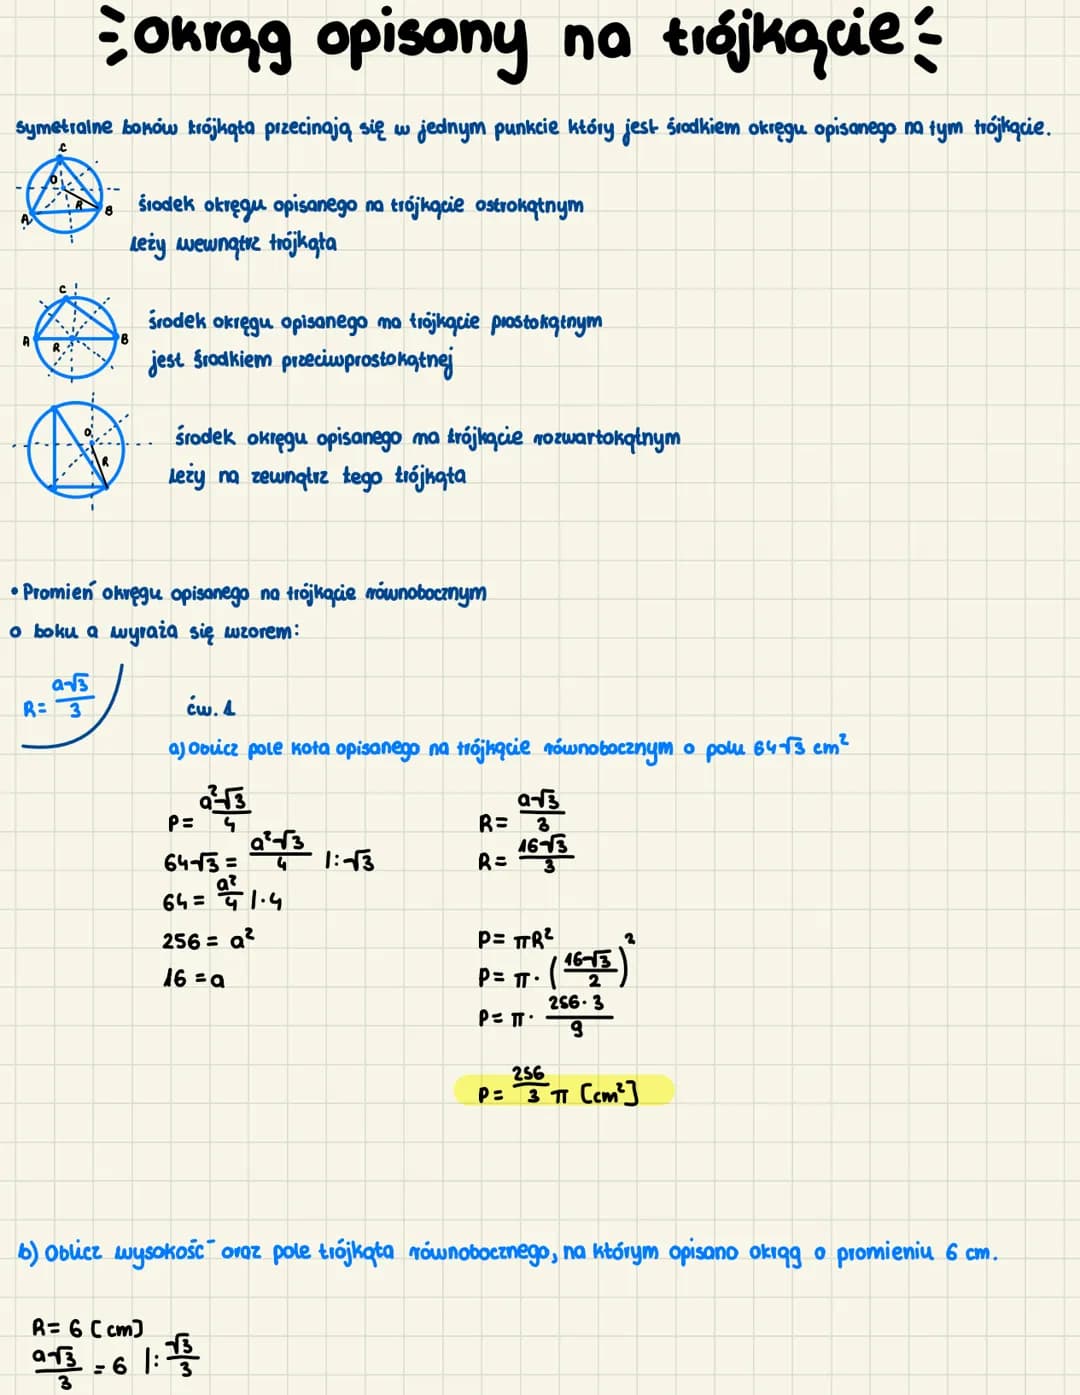 okrąg opisany na trójkącie
symetralne boków trójkąta przecinają się w jednym punkcie który jest środkiem okręgu opisanego na tym trójkącie.
C
O
R
A
B
środek okręgu opisanego na trójkącie ostrokątnym
leży wewnątrz trójkąta
C
A
R
B
środek okręgu opisanego na trójkącie prostokątnym
jest środkiem przeciwprostokątnej
O
R
środek okręgu opisanego na trójkącie rozwartokątnym
leży na zewnątrz tego trójkąta
• Promień okręgu opisanego na trójkącie równobocznym
o boku a wyraża się wzorem:
R = a√3/3
ćw. 1
a) Oblicz pole koła opisanego na trójkącie równobocznym o polu 64√3 cm²
P = a²√3/4
64√3 = a²√3/4 |:√3
64 = a²/4 |·4
256 = a²
16 = a
R = a√3/3
R = 16√3/3
P = πR²
P = π · (16√3/2)²
P = π · 256·3/9
P = 256/3 π [cm²]
b) Oblicz wysokość oraz pole trójkąta równobocznego, na którym opisano okrąg o promieniu 6 cm.
R = 6 [cm]
a√3/3 = 6 |: √3/3